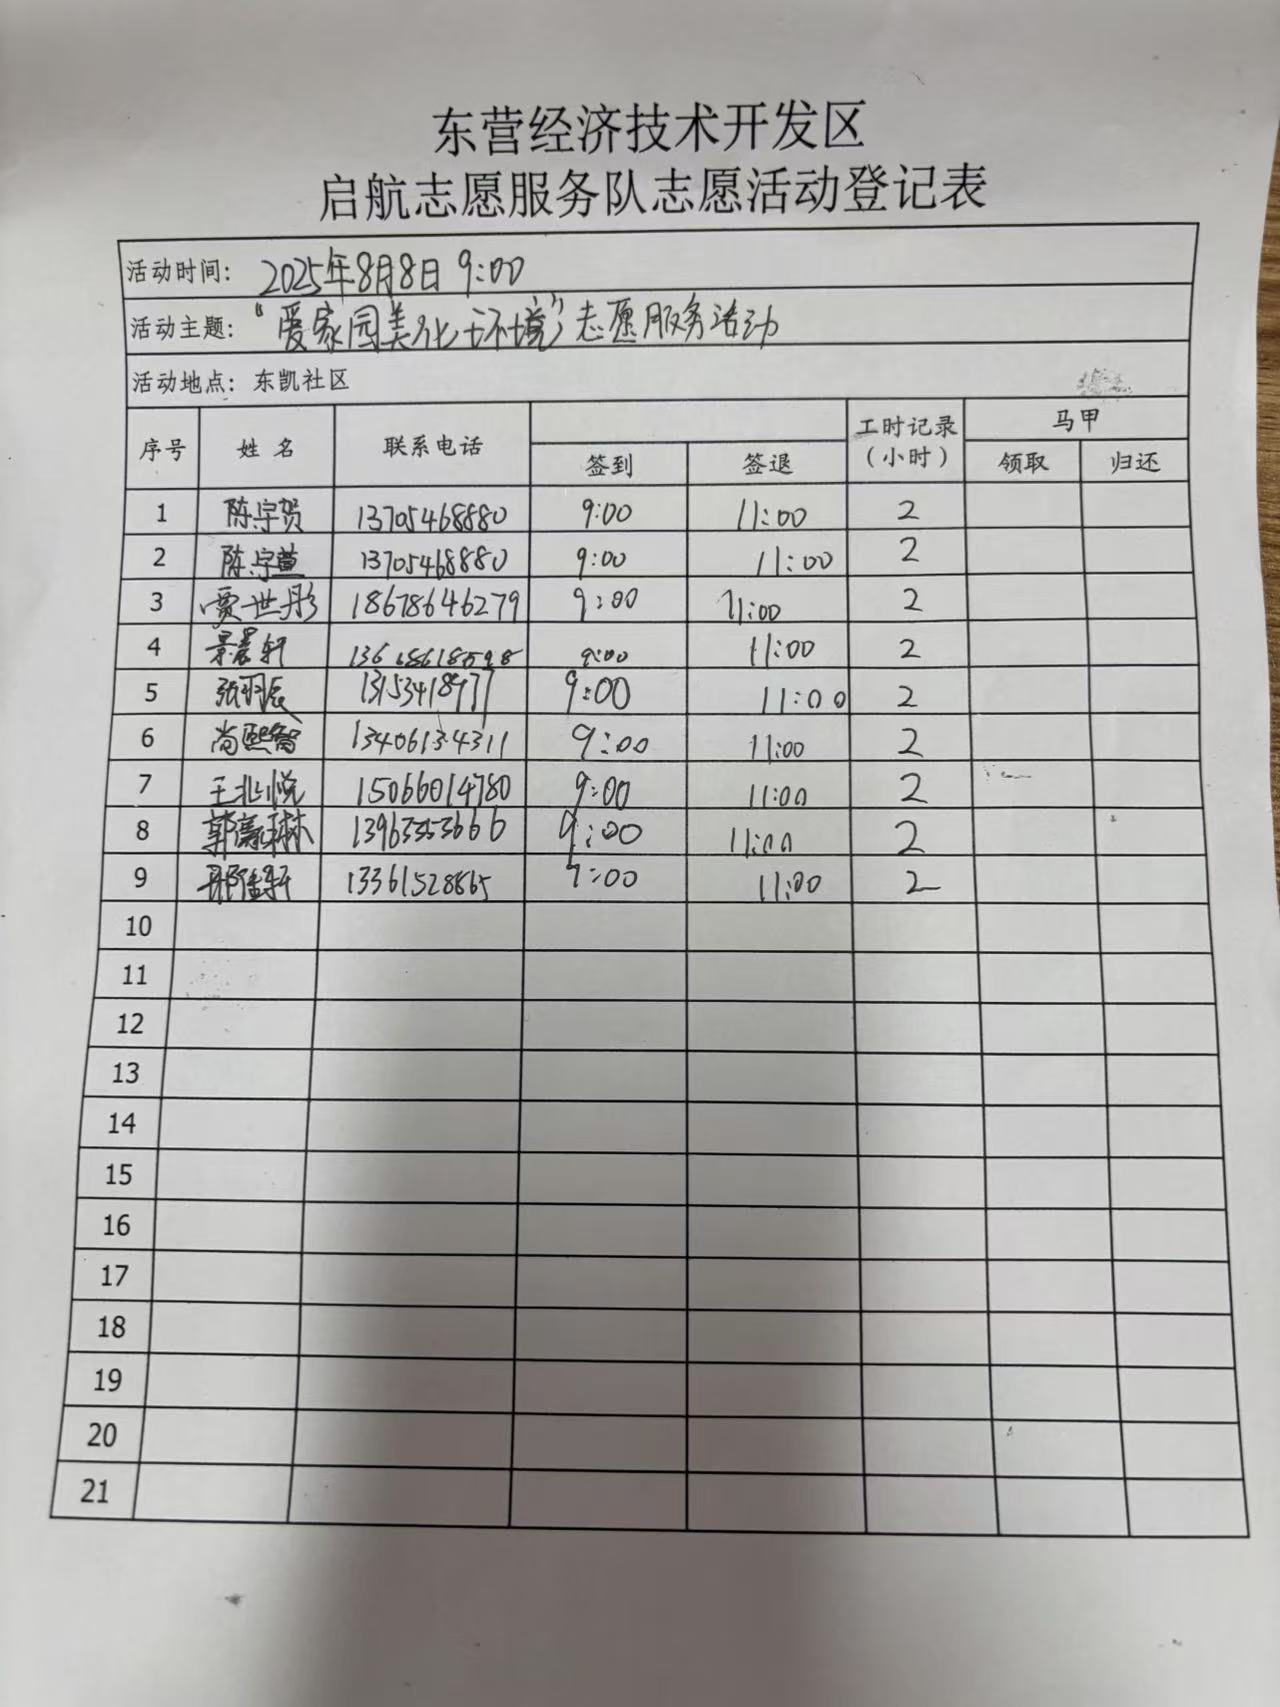 东营经济技术开发区
启航志愿服务队志愿活动登记表
活动时间: 2025年8月8日 9:00
活动主题: "爱家园美化环境"志愿服务活动
活动地点: 东凯社区
序号 姓名 联系电话 签到 签退 工时记录(小时) 马甲 领取 归还
1 陈宇贺 13705468880 9:00 11:00 2
2 陈宇萱 13705468880 9:00 11:00 2
3 贾世彤 18678646279 9:00 11:00 2
4 景晨轩 9:00 11:00 2
5 张羽辰 9:00 11:00 2
6 尚熙智 13406134311 9:00 11:00 2
7 王 悦 15066014780 9:00 11:00 2
8 郭 琳 13963353666 9:00 11:00 2
9 轩 13361528865 9:00 11:00 2
10
11
12
13
14
15
16
17
18
19
20
21